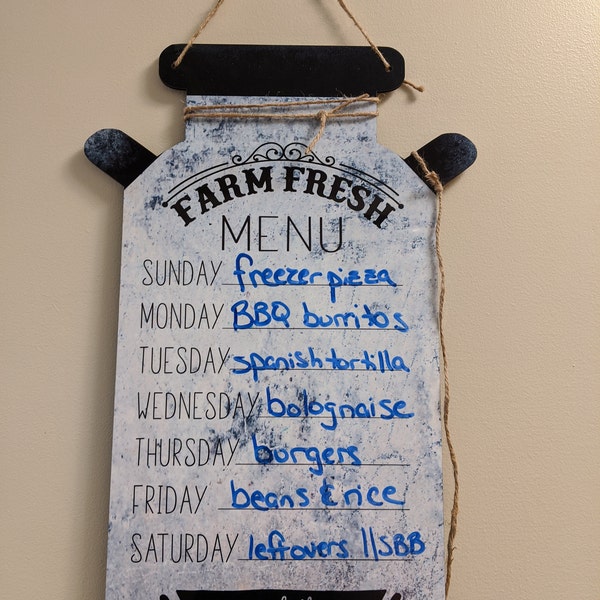 FARM FRESH
MENU
SUNDAY freezer pizza
MONDAY BBQ burritos
TUESDAY spanish tortilla
WEDNESDAY bolognaise
THURSDAY burgers
FRIDAY beans & rice
SATURDAY leftovers //SBB